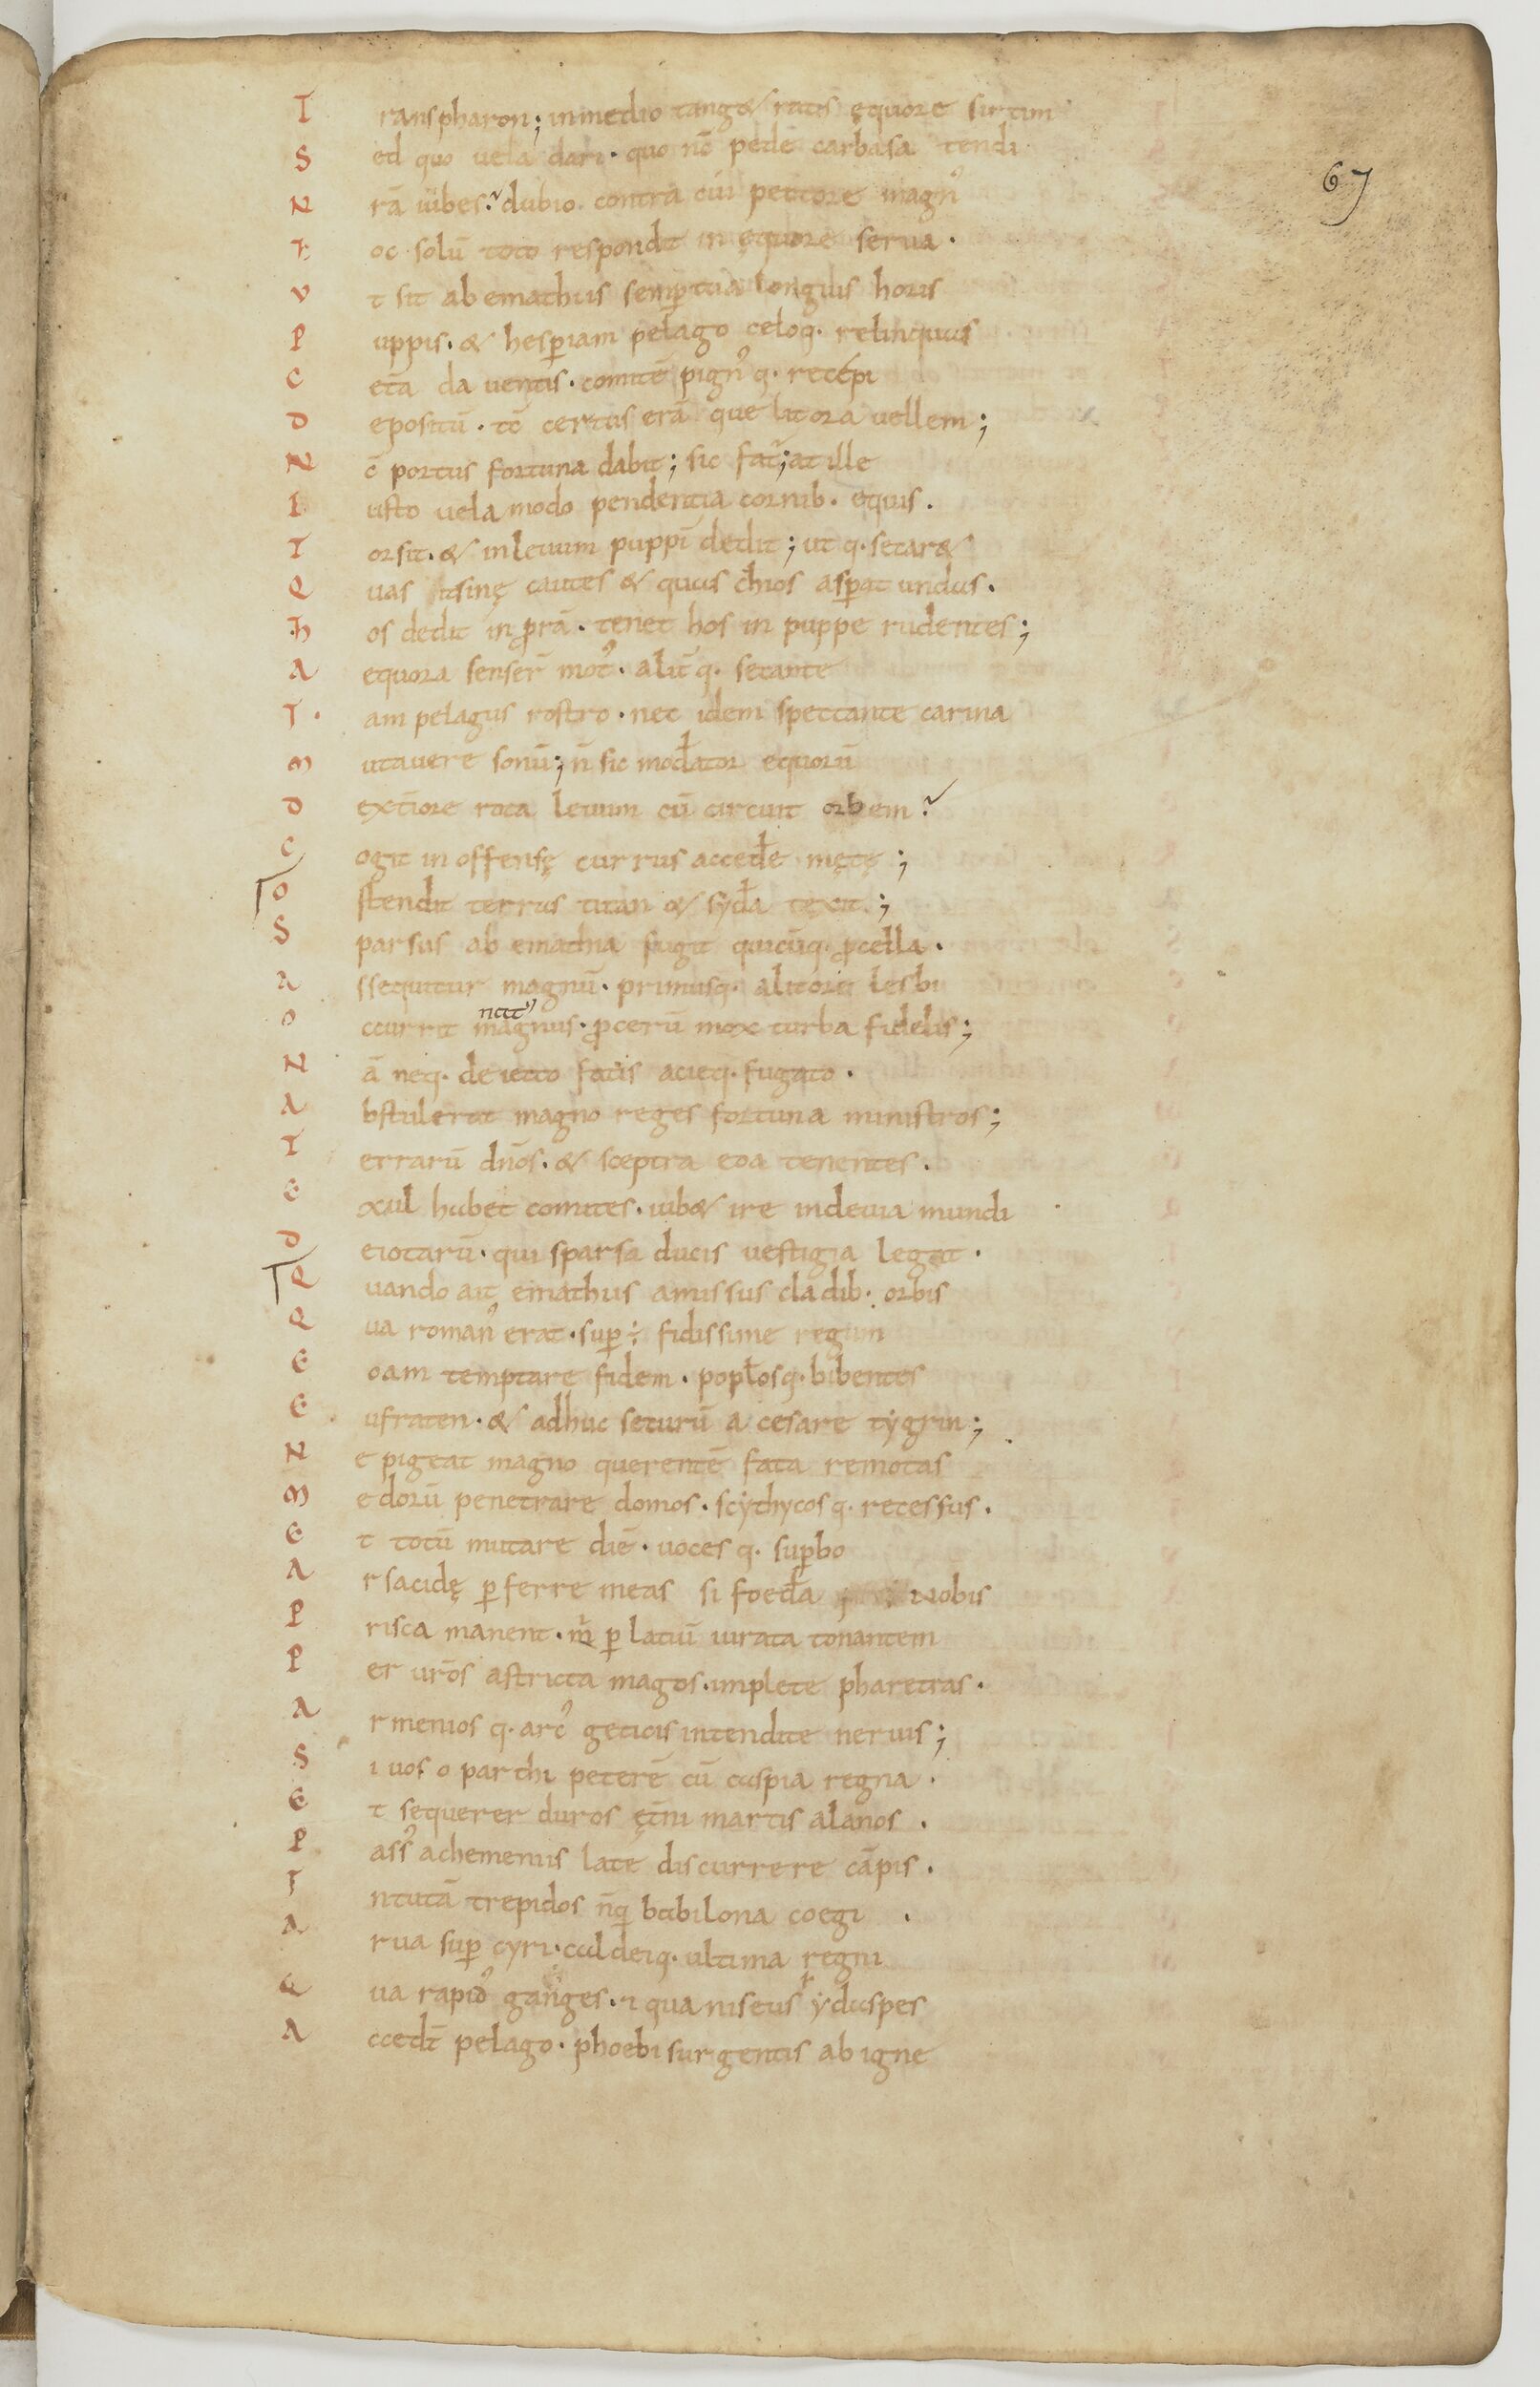 T ranspharon; inmedio tang& ratis ęquore sirtim
67
S ed quo uela dari· quo nc̄ pede carbasa tendi
N rā iubes? dubio contra cui pectore magn᾽
H oc solū toto respondit in ęquore serua·
V t sit ab emathiis semp̄ tua longius horis
P uppis· & hesp̄iam pelago celoq· relinquas
C et̄a da uentis· comitē pign᾽q· recepi
D epositū· tc̄ certus erā que litora uellem;
N c̄ portus fortuna dabit; sic fat᷑; at ille
I usto uela modo pendentia cornib· equis·
T orsit· & inleuum puppī dedit; ut q· secar&
Q uas asinę cautes & quas chios asp̄at undas·
H os dedit in ꝓrā· tenet hos in puppe rudentes;
A equora senser̄ mot᾽· alit̄q· secante
I am pelagus rostro· nec idem spectante carina
M utauere sonū; n̄ sic modłator equorū
D exťiore rota leuum cū circuit orbem?
C ogit in offensę currus accedłe mętę;
O stendit terras titan & sydła texit;
S parsus ab emathia fugit quicūq· ꝓcella·
A ssequitur magnū· primusq· alitore lesbi
nat᾽
O ccurrit magnus· ꝓcerū mox turba fidelis;
N ā neq· deiecto fatis acieq· fugato·
A bstulerat magno reges fortuna ministros;
T errarū dn̄os· & sceptra eoa tenentes·
E xul habet comites· iub& ire indeuia mundi
D eiotarū· qui sparsa ducis uestigia legat·
Q uando ait emathiis amissus cladib· orbis
Q ua roman᾽ erat· sup̄ ÷ fidissime regum
E oam temptare fidem· popłosq· bibentes
E ufraten· & adhuc securū a cesare tygrin;
N e pigeat magno querentē fata remotas
M edorū penetrare domos· scythycosq· recessus·
E t totū mutare diē· uoces q· sup̄bo
A rsacidę ꝑferre meas si foedła nobis
P risca manent· m̄ ꝑ latiū iurata tonantem
P er ur̄os astricta magos· implete pharetras·
A rmenios q· arc᾽ geticis intendite neruis;
S i uos o parthi peterē cū caspia regna·
E t sequerer duros ęťni martis alanos·
P ass᾽ achemeniis late discurrere cāpis·
I ntutā trepidos n̄q babilona coegi·
A rua sup̄ cyri· caldeiq· ultima regni
Q ua rapid᾽ ganges· ⁊ qua niseus ydaspes
A ccedt̄ pelago· phoebi surgentis ab igne